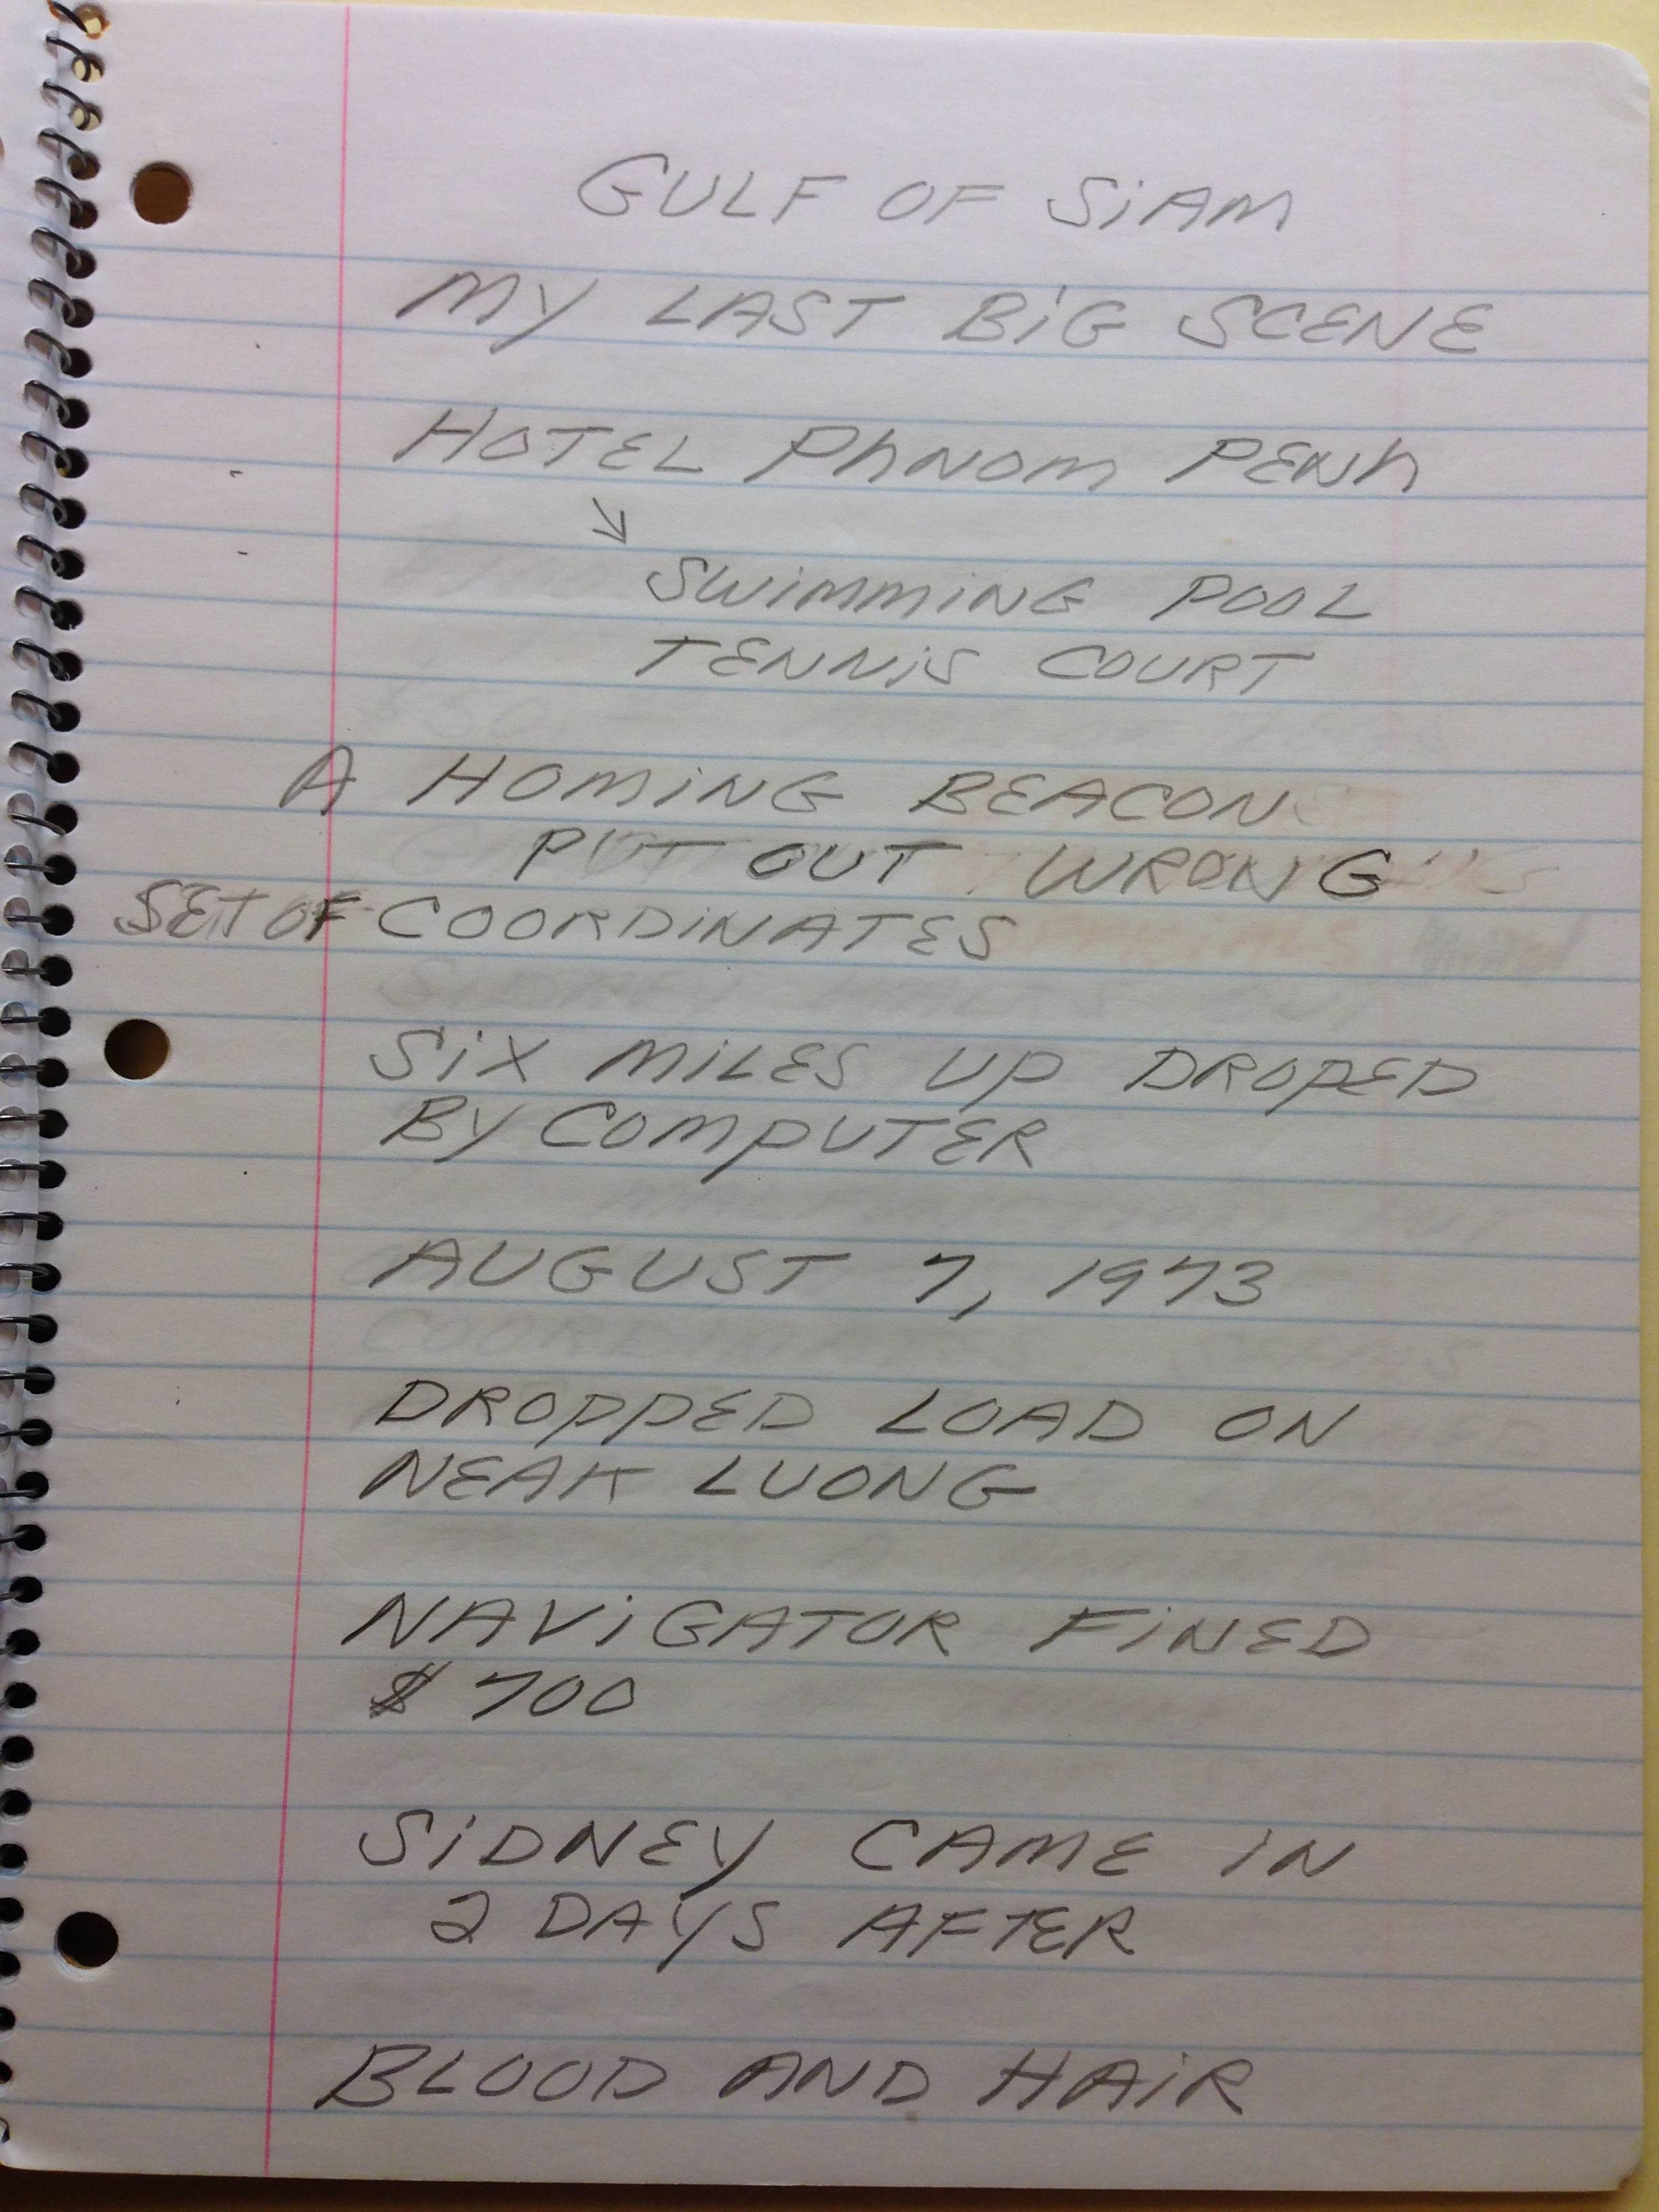 GULF OF SiAM
MY LAST BiG SCENE
HOTEL PhNOM PENh
SWiMMiNG POOL
TENNiS COURT
A HOMiNG BEACON
PUT OUT WRONG
SET OF COORDiNATES
SiX MiLES UP DROPED
BY COMPUTER
AUGUST 7, 1973
DROPPED LOAD ON
NEAK LUONG
NAViGATOR FiNED
$700
SiDNEY CAME iN
2 DAYS AFTER
BLOOD AND HAiR